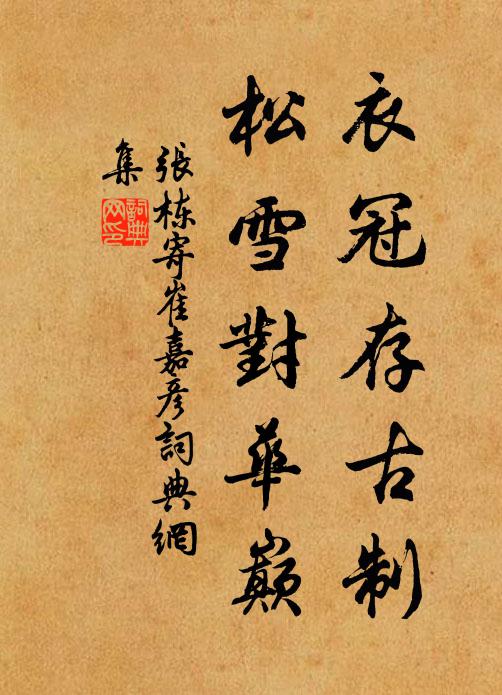 衣冠存古制
松雪對華巔
張栋寄崔嘉彦詞典網
集
詞典
网印